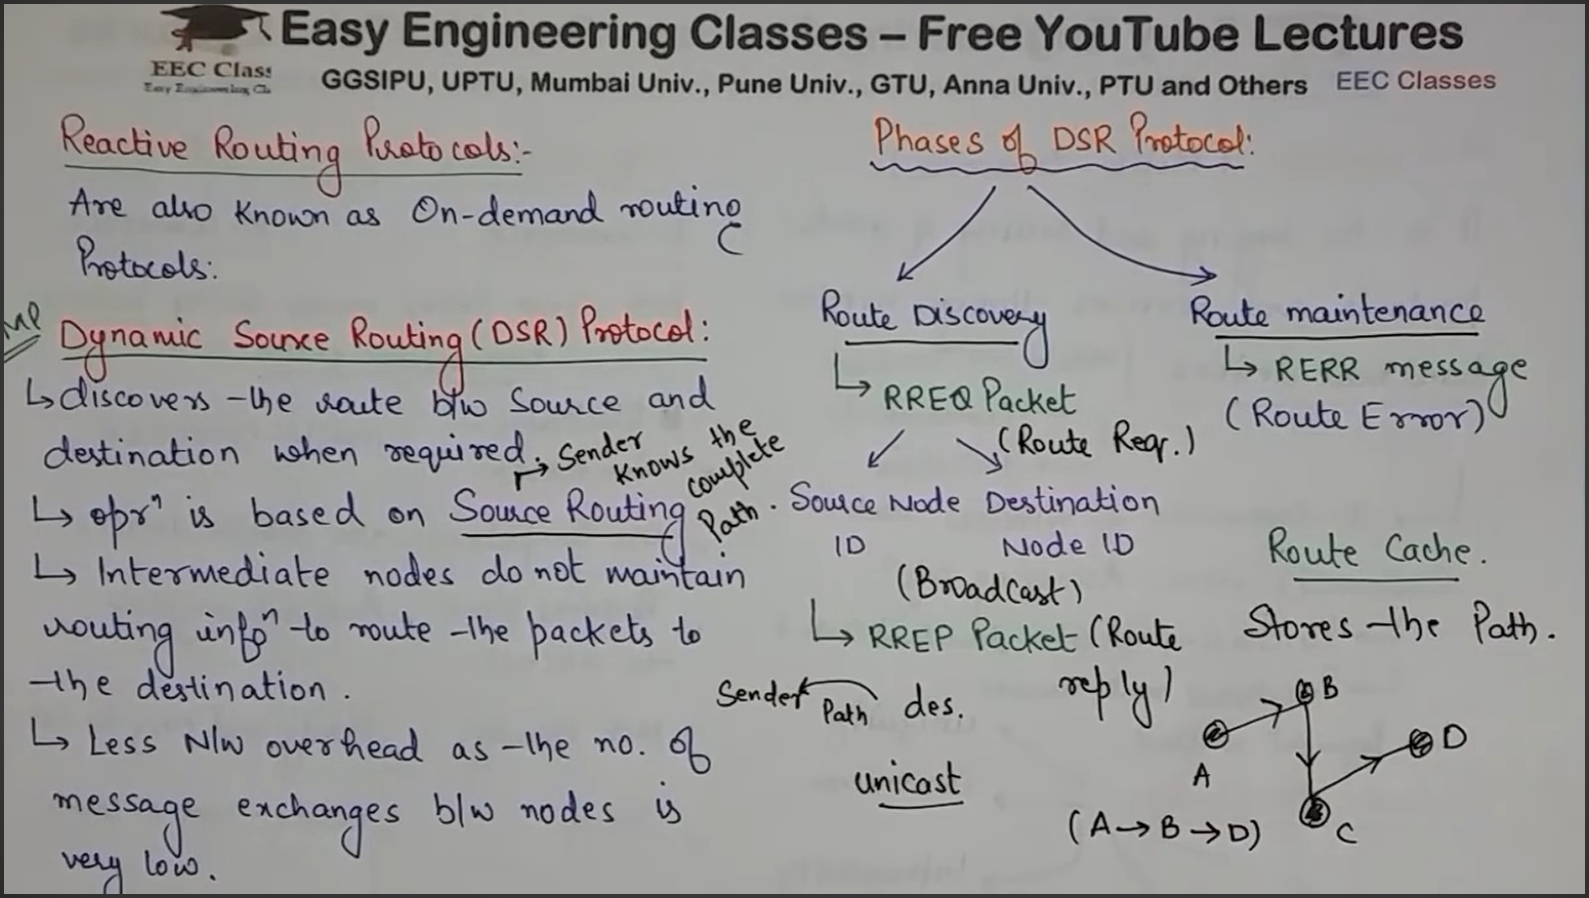 Easy Engineering Classes – Free YouTube Lectures
EEC Class
GGSIPU, UPTU, Mumbai Univ., Pune Univ., GTU, Anna Univ., PTU and Others
EEC Classes
Reactive Routing Protocols:-
Are also known as On-demand routing
Protocols:
Imp
Dynamic Source Routing (DSR) Protocol:
↳ discovers the route b/w Source and
destination when required.
→ Sender knows the complete Path.
↳ oprⁿ is based on Source Routing
↳ Intermediate nodes do not maintain
routing infoⁿ to route the packets to
the destination.
↳ Less N/w overhead as the no. of
message exchanges b/w nodes is
very low.
Phases of DSR Protocol:
Route Discovery
↳ RREQ Packet
(Route Req.)
Source Node
ID
Destination
Node ID
(Broadcast)
↳ RREP Packet (Route
reply)
Sender Path des.
unicast
Route maintenance
↳ RERR message
(Route Error)
Route Cache.
Stores the Path.
B
A
D
C
(A→B→D)